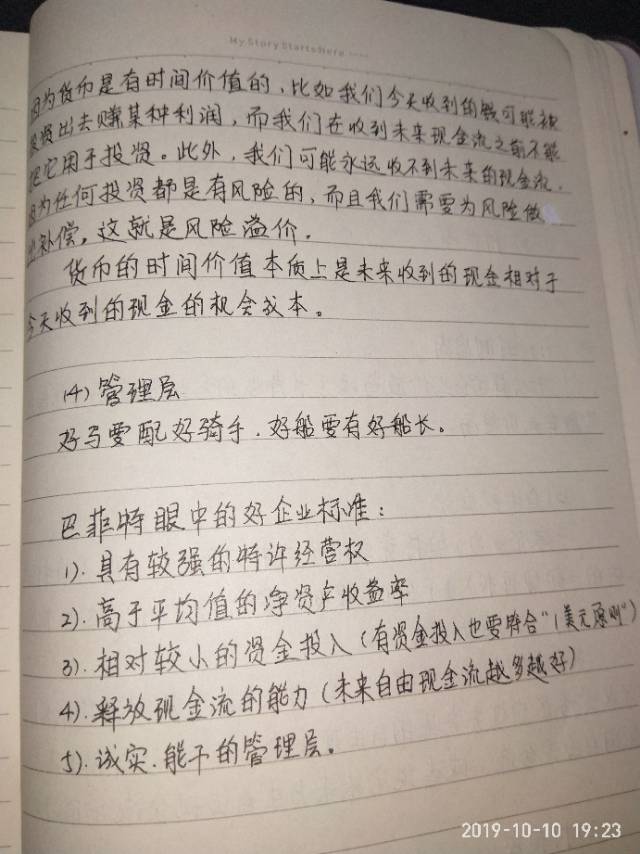 My Story Starts Here
因为货币是有时间价值的，比如我们今天收到的钱可能被
投资出去赚某种利润，而我们在收到未来现金流之前不能
把它用于投资。此外，我们可能永远收不到未来的现金流，
因为任何投资都是有风险的，而且我们需要为风险做
补偿，这就是风险溢价。
货币的时间价值本质上是未来收到的现金相对于
今天收到的现金的机会成本。
(4) 管理层
好马要配好骑手，好船要有好船长。
巴菲特眼中的好企业标准：
1). 具有较强的特许经营权
2). 高于平均值的净资产收益率
3). 相对较小的资金投入（有资金投入也要符合“1美元原则”）
4). 释放现金流的能力（未来自由现金流越多越好）
5). 诚实、能干的管理层。
2019-10-10 19:23